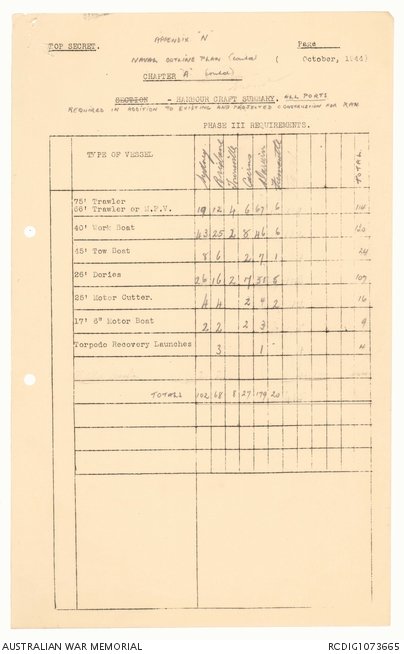 APPENDIX "N"
TOP SECRET. Page
NAVAL OUTLINE PLAN (contd) ( October, 1944)
CHAPTER "A" (contd)
SECTION - HARBOUR CRAFT SUMMARY. ALL PORTS
REQUIRED IN ADDITION TO EXISTING AND PROJECTED CONSTRUCTION FOR RAN
PHASE III REQUIREMENTS.
TYPE OF VESSEL Sydney Brisbane Townsville Cairns Darwin Fremantle TOTAL
75' Trawler
66' Trawler or M.F.V. 19 12 4 6 67 6 114
40' Work Boat 43 25 2 8 46 6
45' Tow Boat 8 6 2 7 1 24
26' Dories 26 16 2 7 51 5 107
25' Motor Cutter. 4 4 2 4 2 16
17' 6" Motor Boat 2 2 2 3 9
Torpedo Recovery Launches 3 1 4
TOTALS 102 68 8 27 179 20
AUSTRALIAN WAR MEMORIAL RCDIG1073665